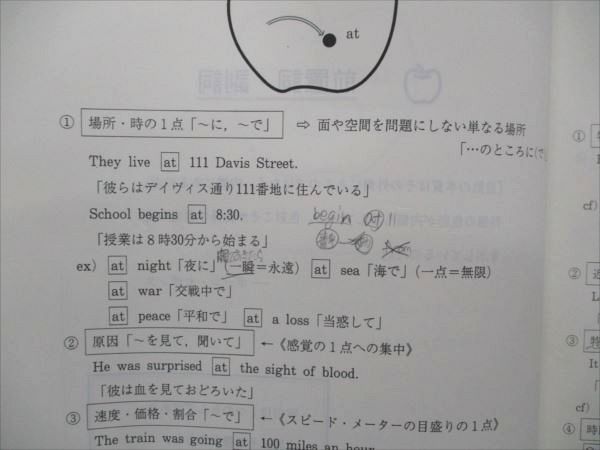 at
① 場所・時の1点「～に，～で」 ⇨ 面や空間を問題にしない単なる場所
「…のところに(で)
They live at 111 Davis Street.
「彼らはデイヴィス通り111番地に住んでいる」
School begins at 8:30.
begin at
「授業は8時30分から始まる」
ex) at night「夜に」(一瞬＝永遠) at sea「海で」(一点＝無限)
at war「交戦中で」
at peace「平和で」 at a loss「当惑して」
② 原因「～を見て，聞いて」 ←《感覚の1点への集中》
He was surprised at the sight of blood.
「彼は血を見ておどろいた」
③ 速度・価格・割合「～で」 ←《スピード・メーターの目盛りの1点》
The train was going at 100 miles an hour.
①
cf)
②
③
It
cf)
④ 時